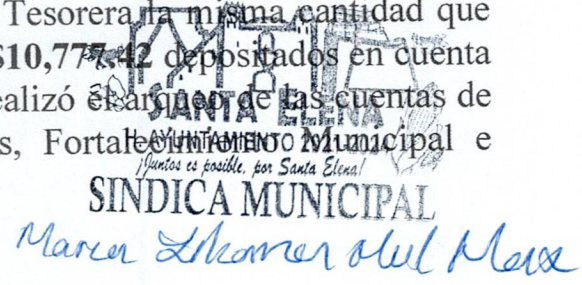 Tesorera la misma cantidad que
$10,777.42 depositados en cuenta
ealizó el arqueo de las cuentas de
s, Fortalecimiento Municipal e
SANTA ELENA
H. AYUNTAMIENTO
¡Juntos es posible, por Santa Elena!
SINDICA MUNICIPAL